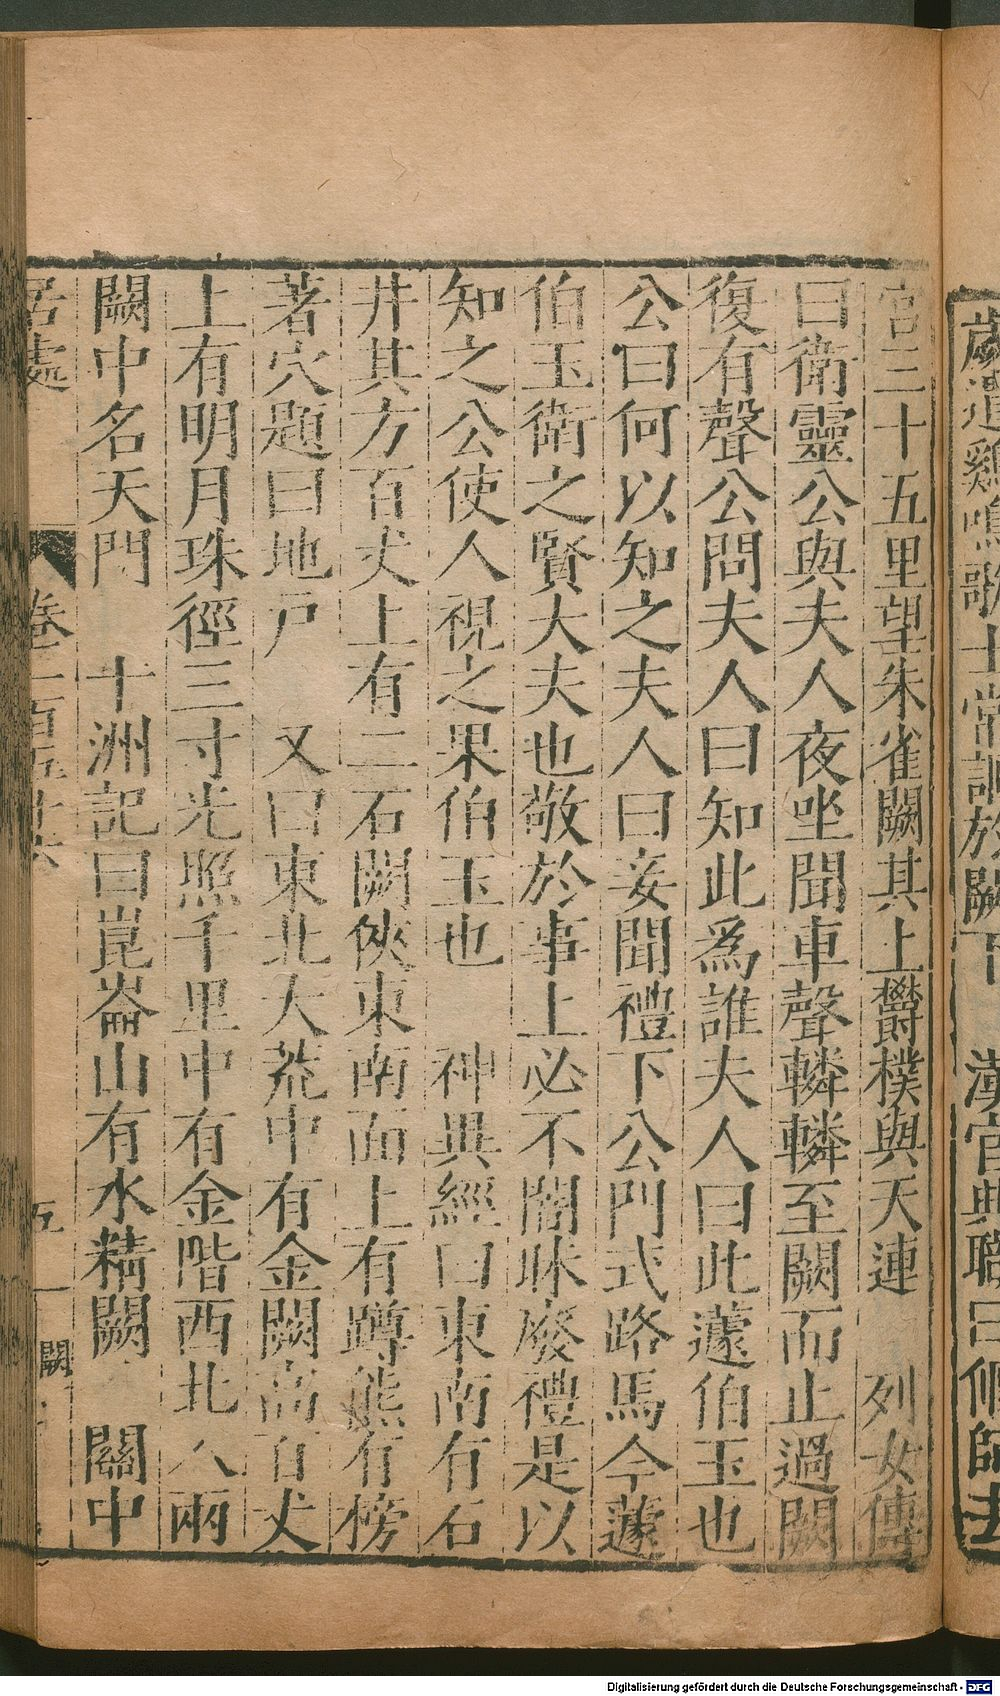 歲遺鷄鳴歌士常調於闕下　漢官典職曰偃師去
宮三十五里望朱雀闕其上欝樸與天連　列女傳
曰衛靈公與夫人夜坐聞車聲轔轔至闕而止過闕
復有聲公問夫人曰知此爲誰夫人曰此蘧伯玉也
公曰何以知之夫人曰妾聞禮下公門式路馬今蘧
伯玉衛之賢大夫也敬於事上必不闇昧廢禮是以
知之公使人視之果伯玉也　神異經曰東南有石
井其方百丈上有二石闕俠東南面上有蹲熊有榜
著穴題曰地戸　又曰東北大荒中有金闕高百丈
上有明月珠徑三寸光照千里中有金階西北入兩
闕中名天門　十洲記曰崑崙山有水精闕　關中
居處　卷一百五十六　五　闕
Digitalisierung gefördert durch die Deutsche Forschungsgemeinschaft - DFG